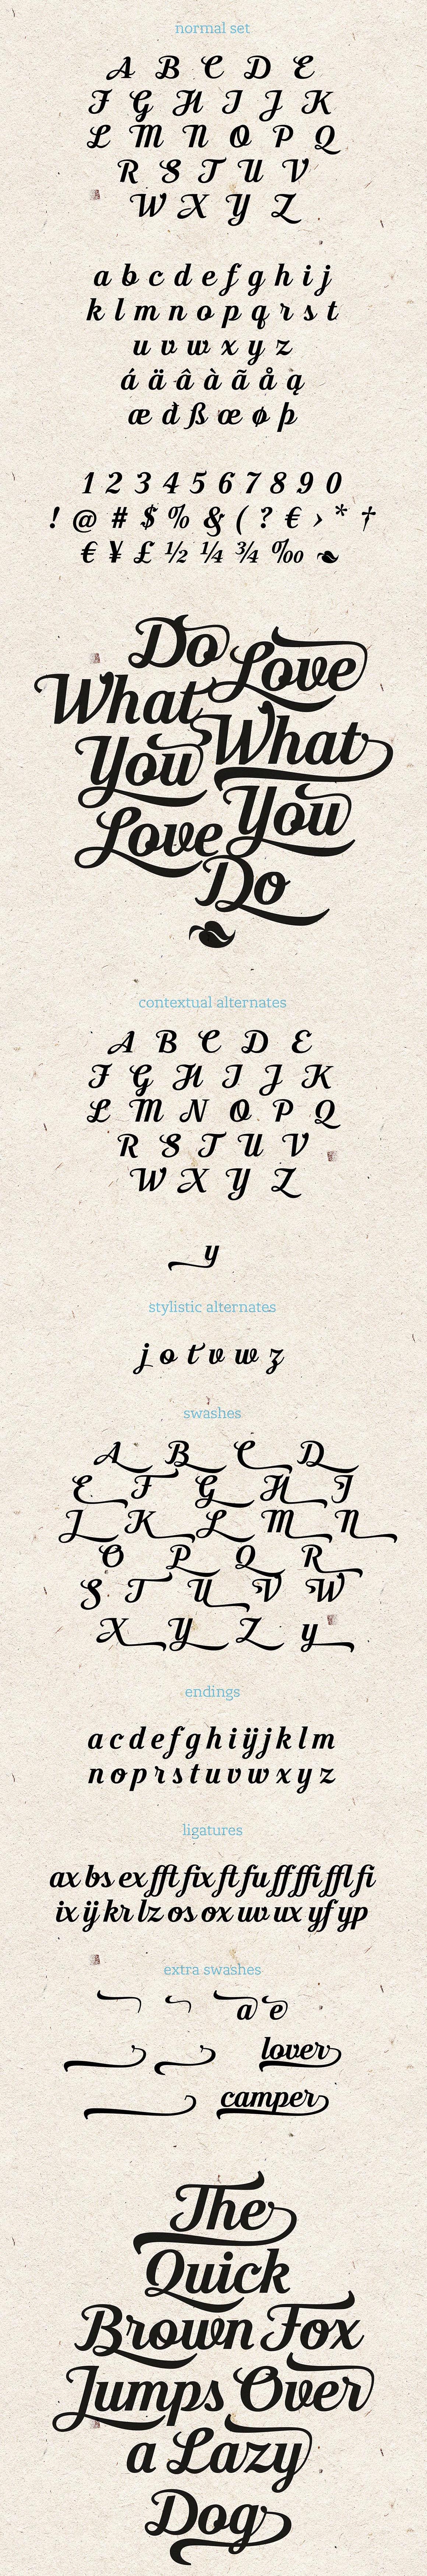 normal set
A B C D E
F G H I J K
L M N O P Q
R S T U V
W X Y Z
a b c d e f g h i j
k l m n o p q r s t
u v w x y z
á ä â à ã å ą
æ đ ß œ ø þ
1 2 3 4 5 6 7 8 9 0
! @ # $ % & ( ? € › * †
€ ¥ £ ½ ¼ ¾ ‰
Do Love
What What
You You
Love Do
contextual alternates
A B C D E
F G H I J K
L M N O P Q
R S T U V
W X Y Z
y
stylistic alternates
j o t v w z
swashes
A B C D
E F G H I
J K L M N
O P Q R
S T U V W
X Y Z y
endings
a c d e f g h i ÿ j k l m
n o p r s t u v w x y z
ligatures
ax bs ex fft fix ft fu ff ffi ffl fi
ix ij kr lz os ox uv ux yf yp
extra swashes
a e
lover
camper
The
Quick
Brown Fox
Jumps Over
a Lazy
Dog